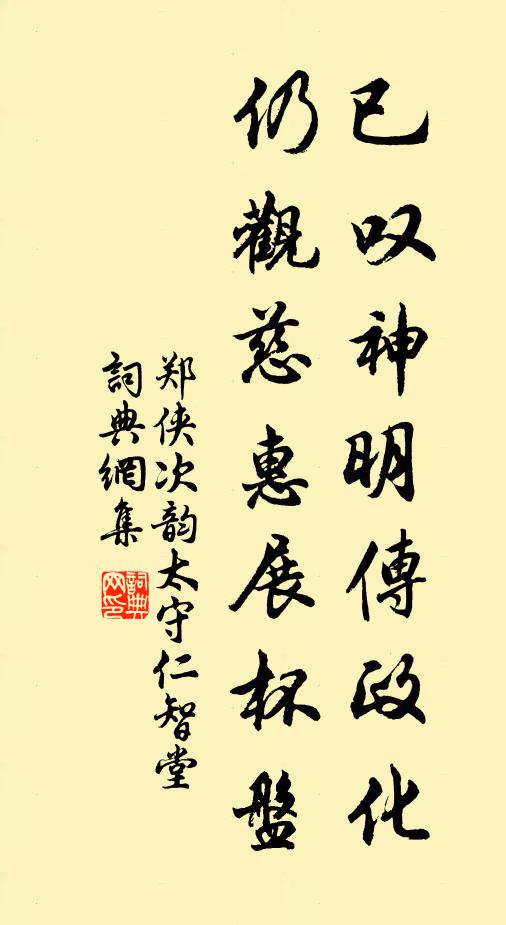 已叹神明傳政化
仍觀慈惠展杯盤
郑侠次韵太守仁智堂
詞典網集
詞典网印